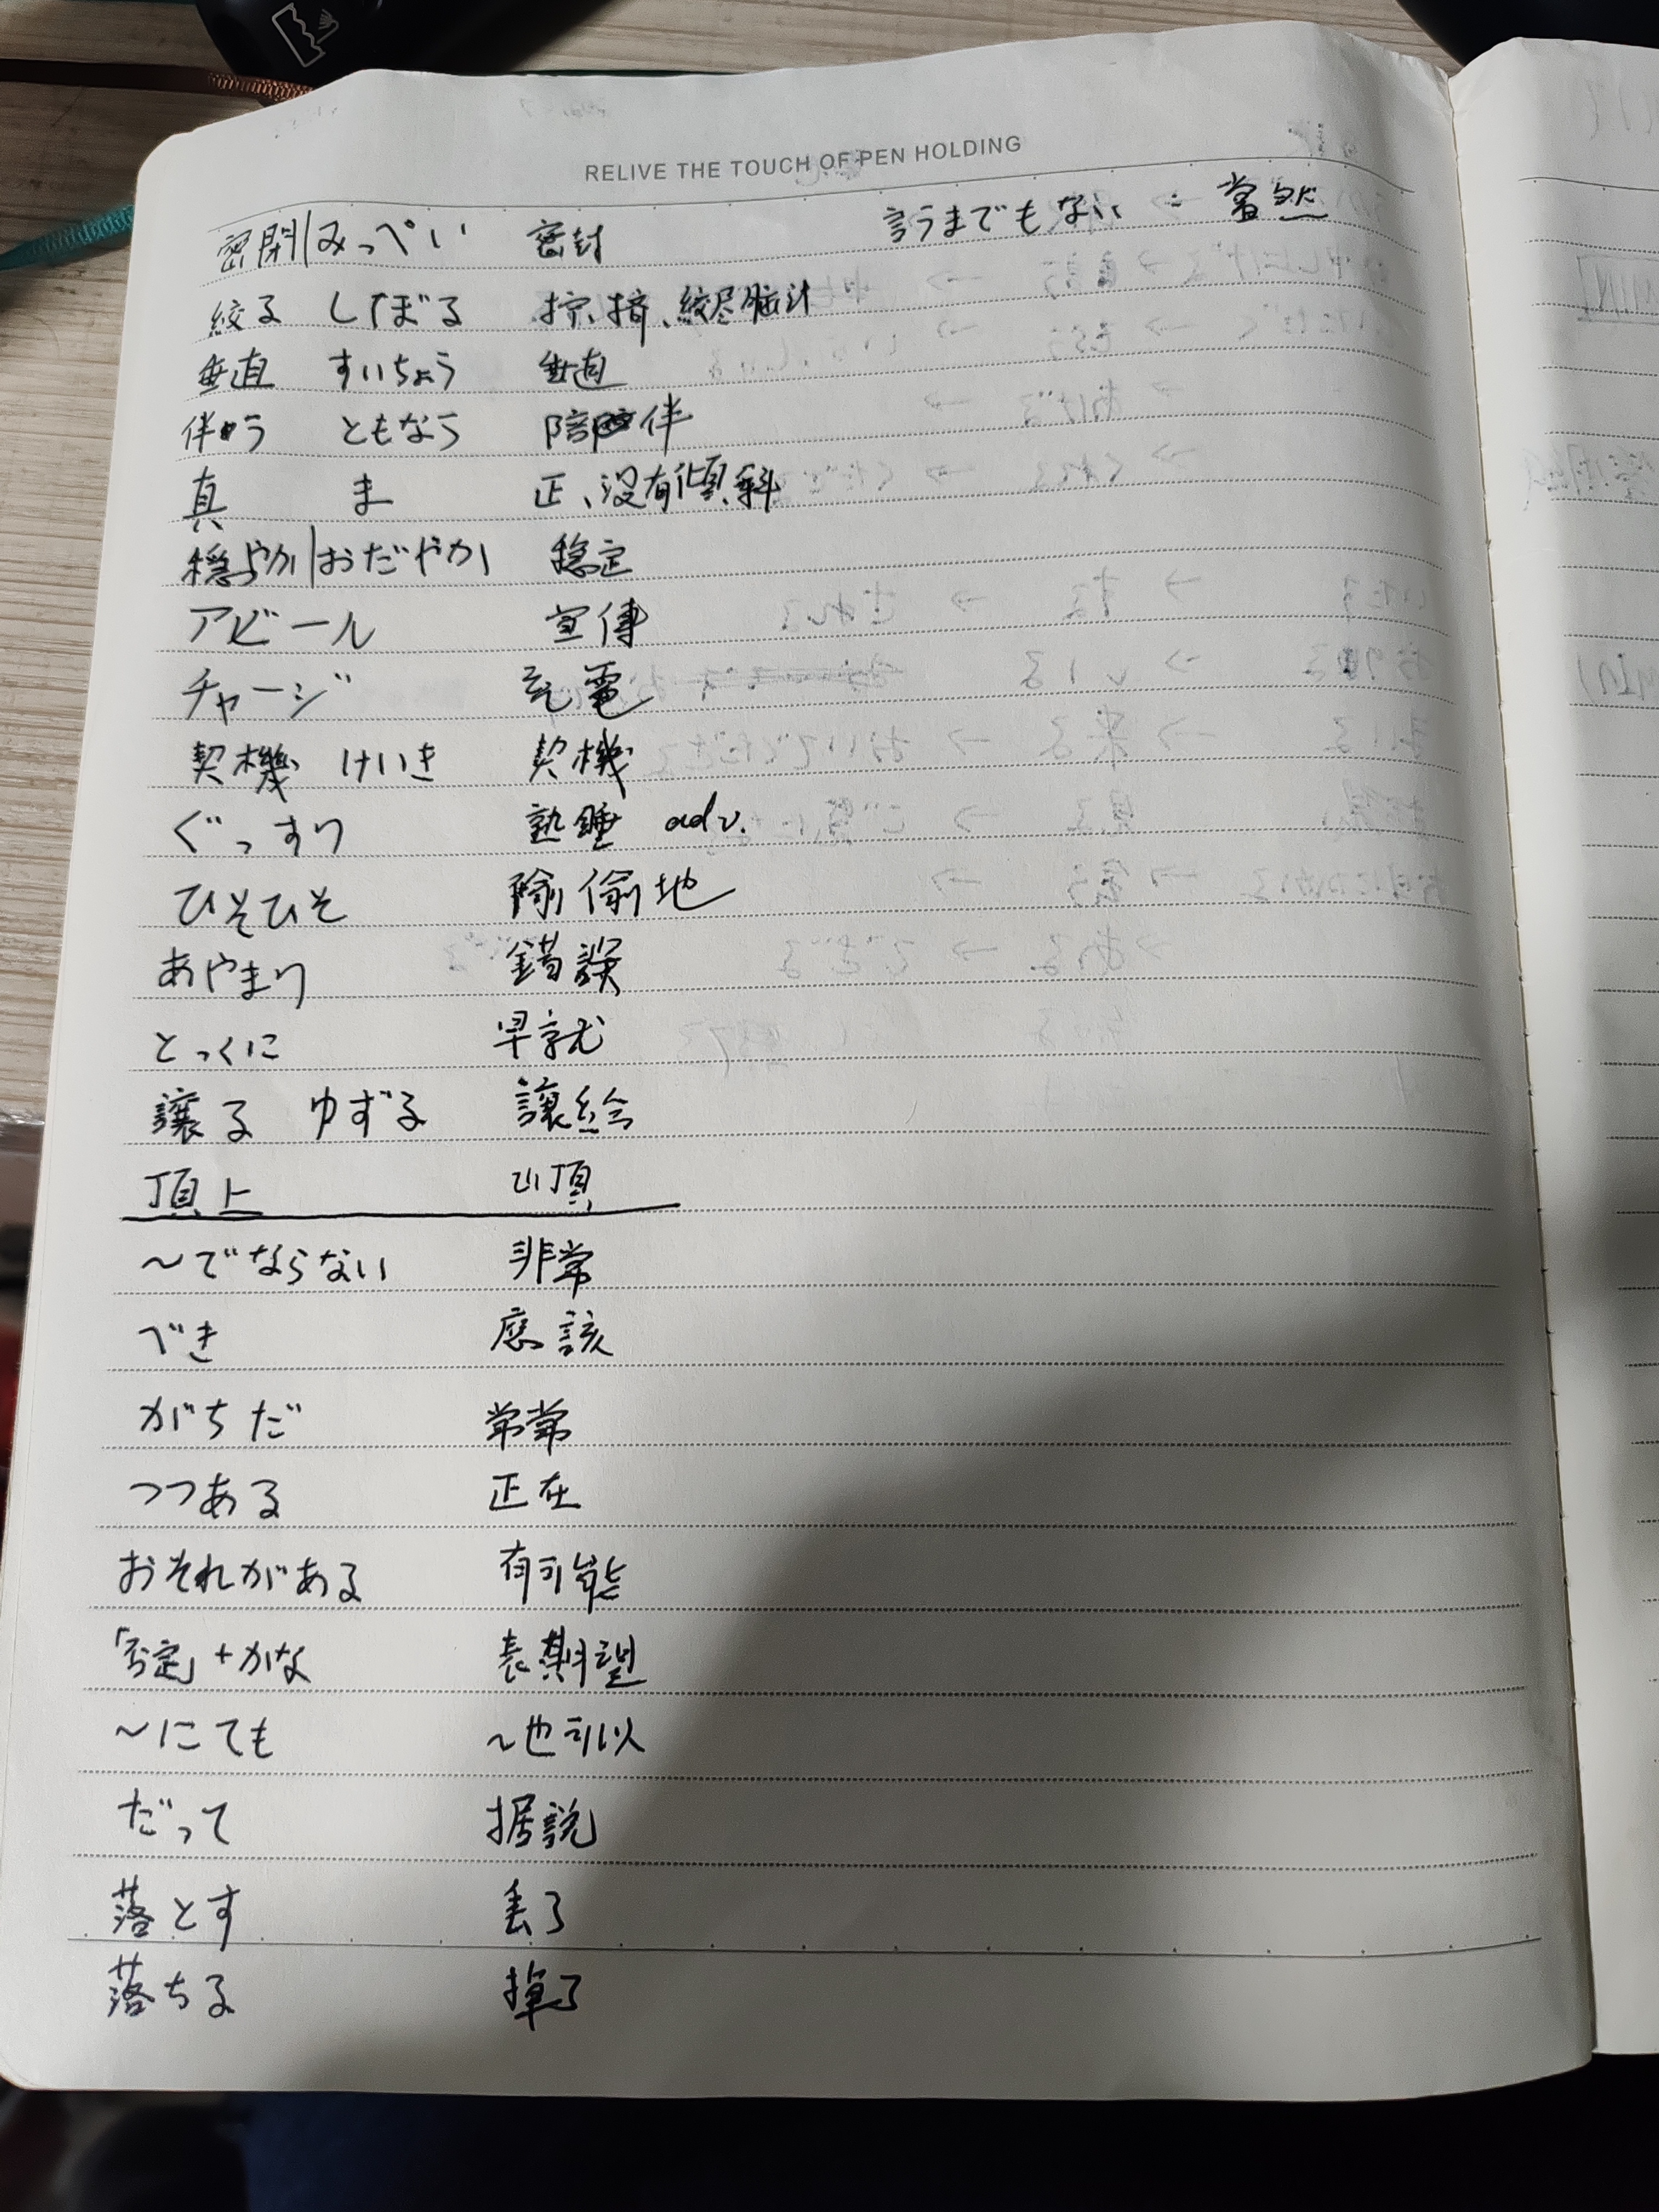 RELIVE THE TOUCH OF PEN HOLDING
密閉|みっぺい 密封 言うまでもない : 當然
絞る しぼる 拧、挤、絞尽脑汁
垂直 すいちょう 垂直
伴う ともなう 陪伴
真 ま 正、没有傾斜
穏やか|おだやか 稳定
アピール 宣傳
チャージ 充電
契機 けいき 契機
ぐっすり 熟睡 adv.
ひそひそ 偷偷地
あやまり 錯誤
とっくに 早就
讓る ゆずる 讓給
頂上 山頂
〜でならない 非常
べき 應該
がちだ 常常
つつある 正在
おそれがある 有可能
「否定」+かな 表期望
〜にても 〜也可以
だって 据説
落とす 丢了
落ちる 掉了